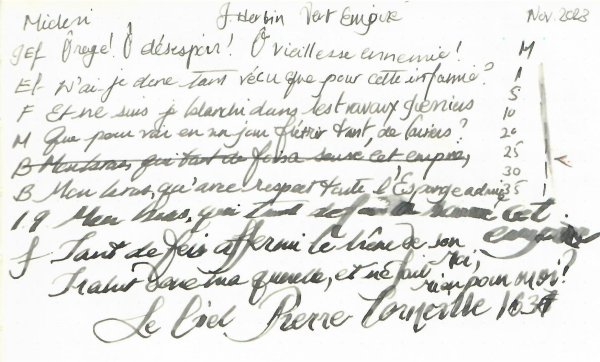 Midori J Herbin Vert Empire Nov. 2023
JEF Ô rage! Ô désespoir! Ô vieillesse ennemie! M
EF N'ai je donc tant vécu que pour cette infamie? 1
F Et ne suis je blanchi dans les travaux guerriers 5
M Que pour voir en un jour flétrir tant de lauriers? 10
B Mon bras, qui tant de fois a sauvé cet empire, 20
B Mon bras, qu'avec respect toute l'Espagne admire 25
1 9 Mon bras, qui tant de fois a sauvé cet empire 30
f Tant de fois affermi le trône de son roi, 35
Trahit donc ma querelle, et ne fait rien pour moi?
Le Cid Pierre Corneille 1637